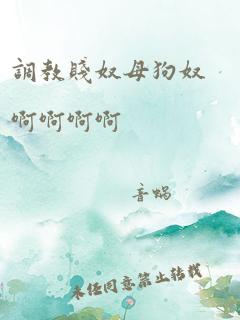 調教賤奴母狗奴
啊啊啊啊
音蝸
未经同意禁止转载